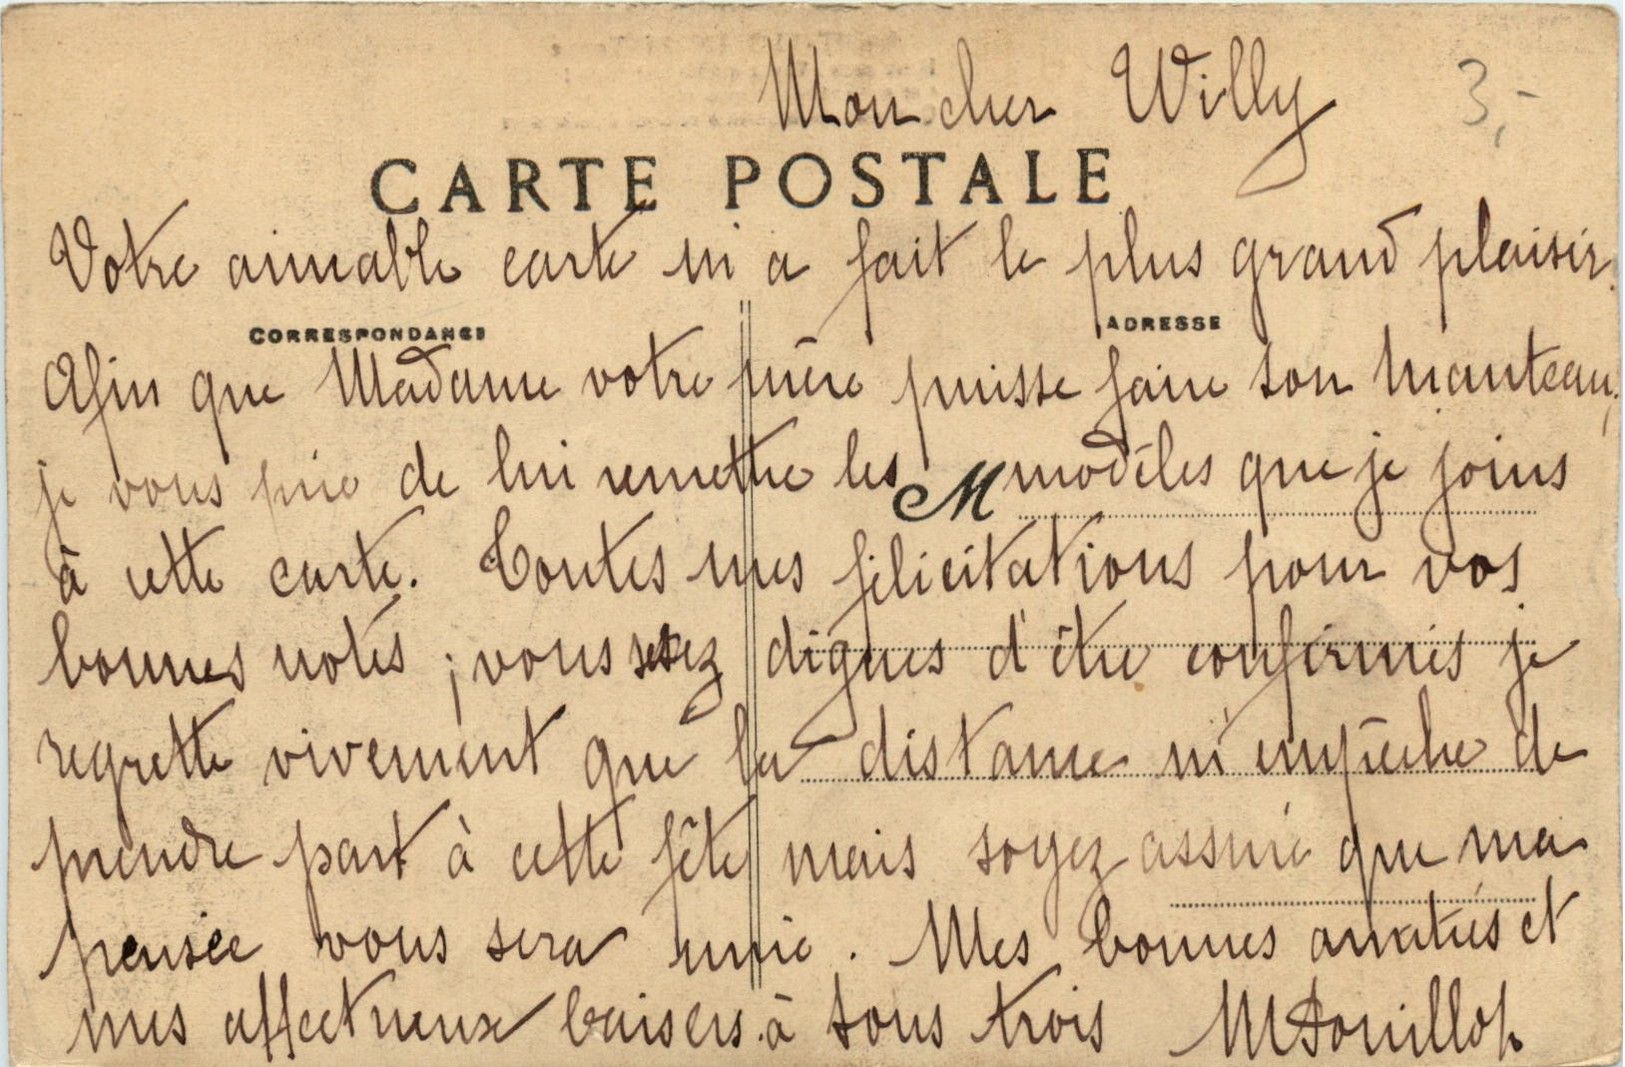 Mon cher Willy
3,-
CARTE POSTALE
Votre aimable carte m'a fait le plus grand plaisir.
CORRESPONDANCE
ADRESSE
Afin que Madame votre mère puisse faire son manteau,
je vous prie de lui remettre les modèles que je joins
M
à cette carte. Toutes mes félicitations pour vos
bonnes notes ; vous serez dignes d'être confirmés je
regrette vivement que la distance m'empêche de
prendre part à cette fête mais soyez assuré que ma
pensée vous sera unie. Mes bonnes amitiés et
mes affectueux baisers à tous trois